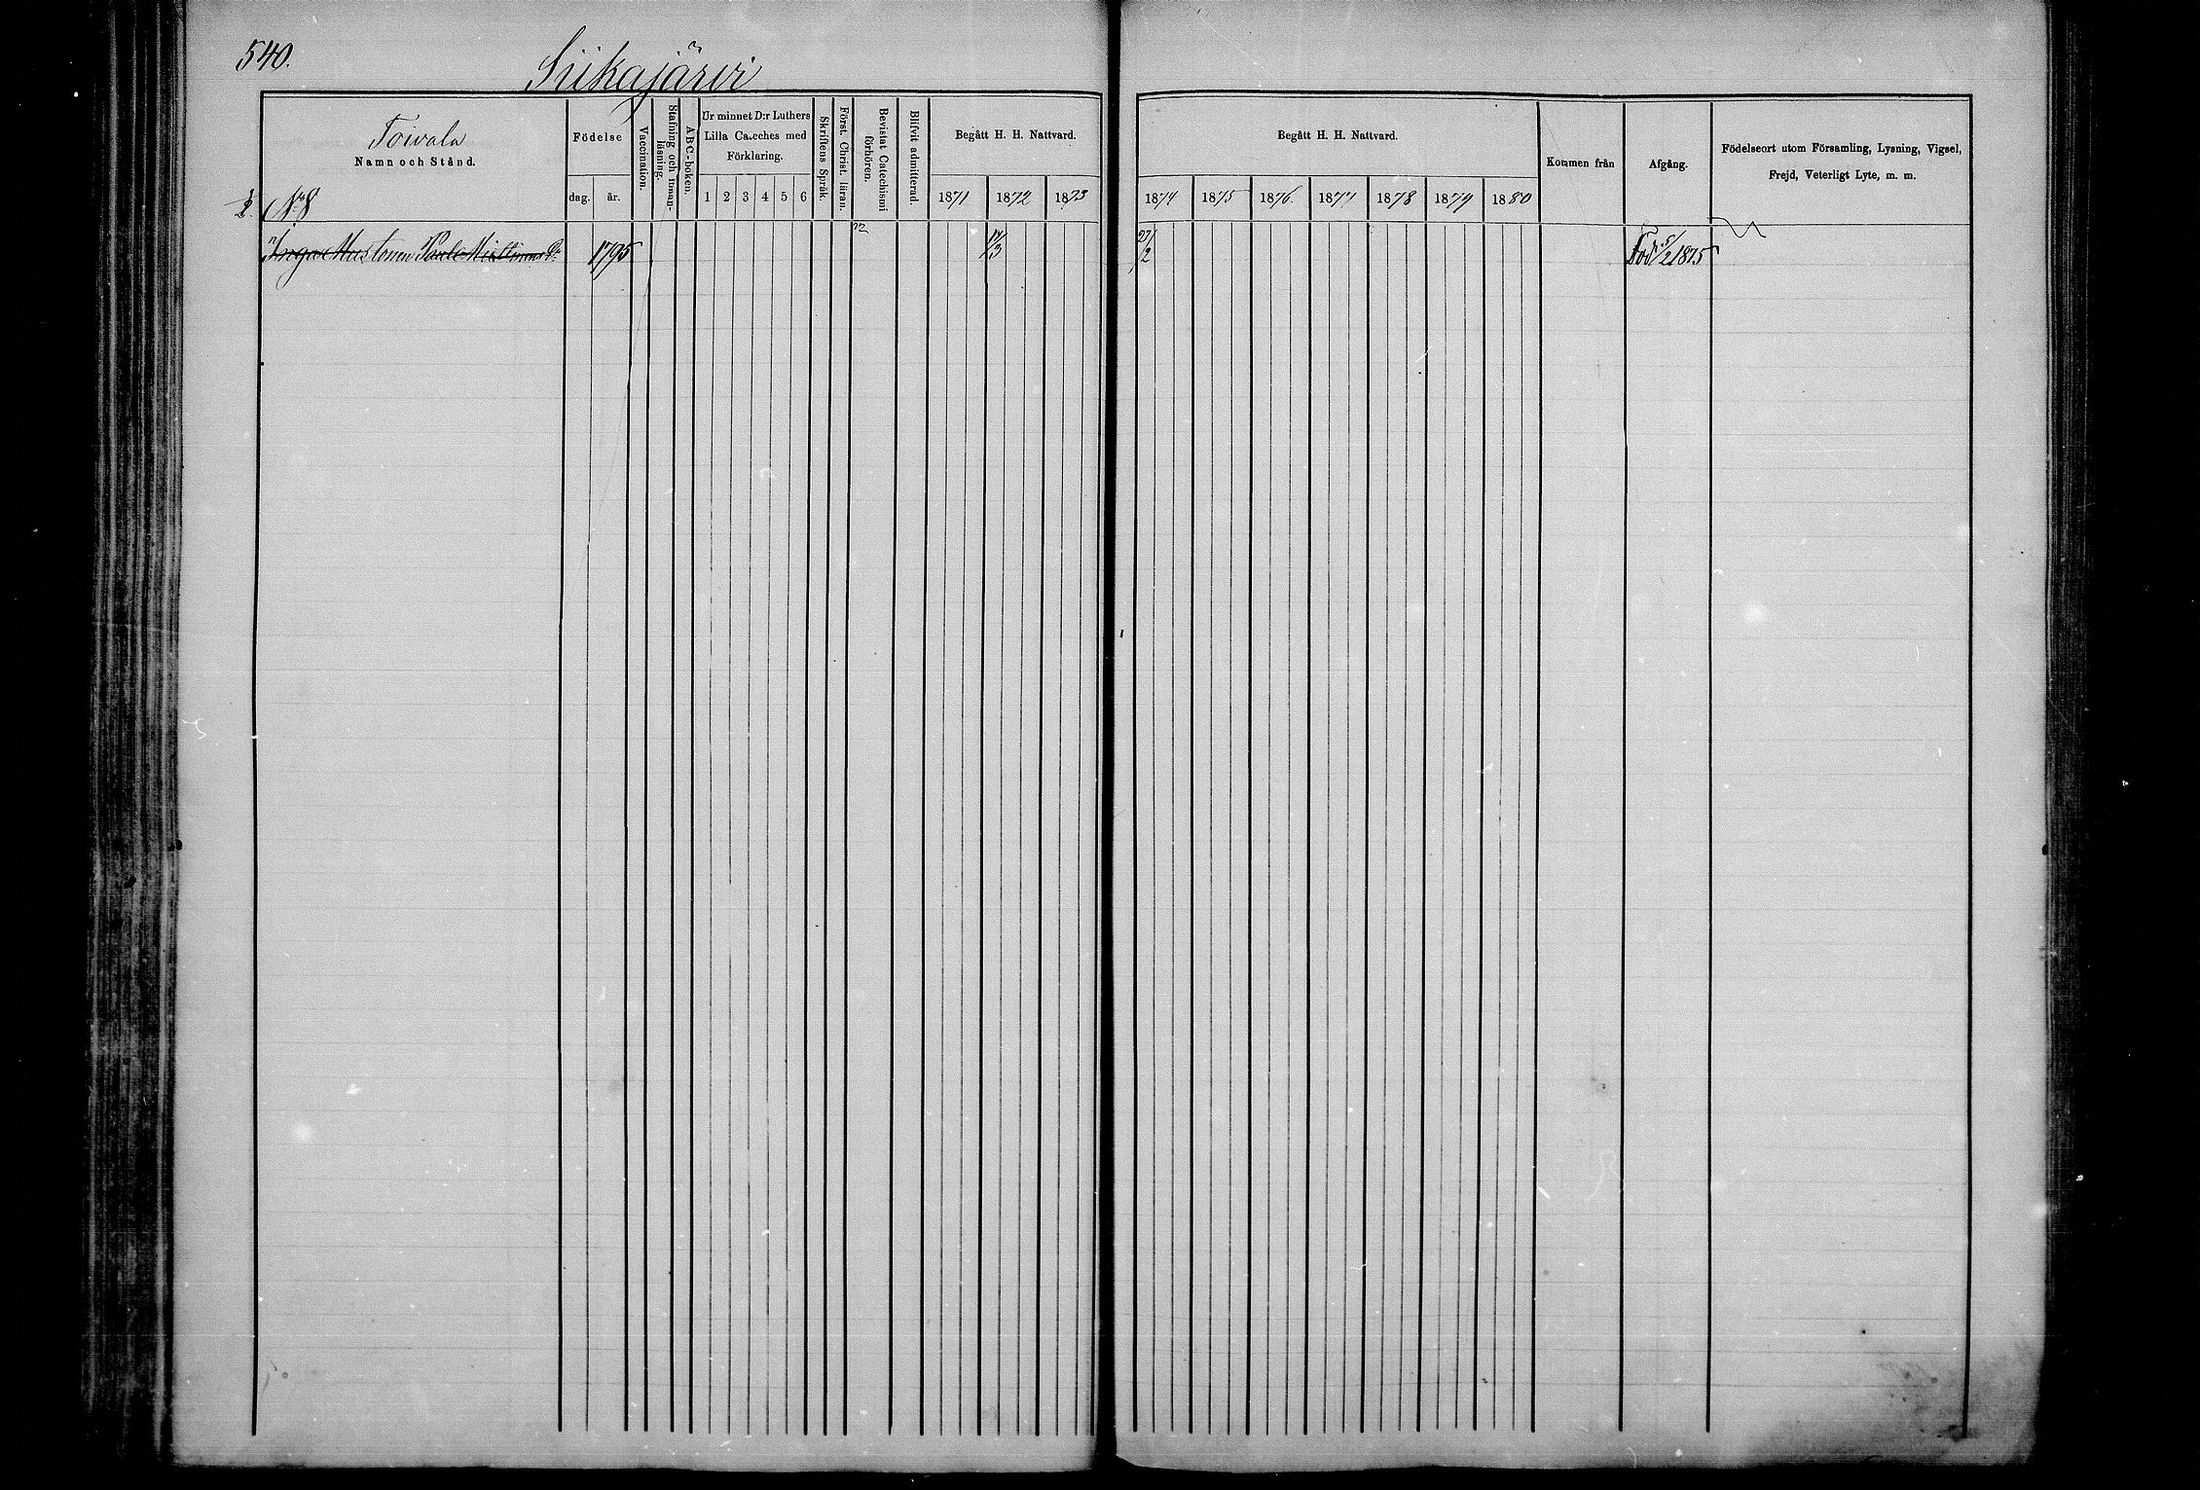 540.
Siikajärvi
Toivala
Namn och Stånd.
Födelse
dag. år.
Vaccination.
Stafning och innan-läsning.
ABC-boken.
Ur minnet D:r Luthers
Lilla Cateches med
Förklaring.
1 2 3 4 5 6
Skriftens Språk.
Först. Christ. läran.
Bevistat Catechismi förhören.
Blifvit admitterad.
Begått H. H. Nattvard.
1871 1872 1873
Begått H. H. Nattvard.
1874 1875 1876. 1877 1878 1879 1880
Kommen från
Afgång.
Födelseort utom Församling, Lysning, Vigsel,
Frejd, Veterligt Lyte, m. m.
2. N:o 8
Inga Mustonen 1795 17/3 27/2 Död 5/2 1875